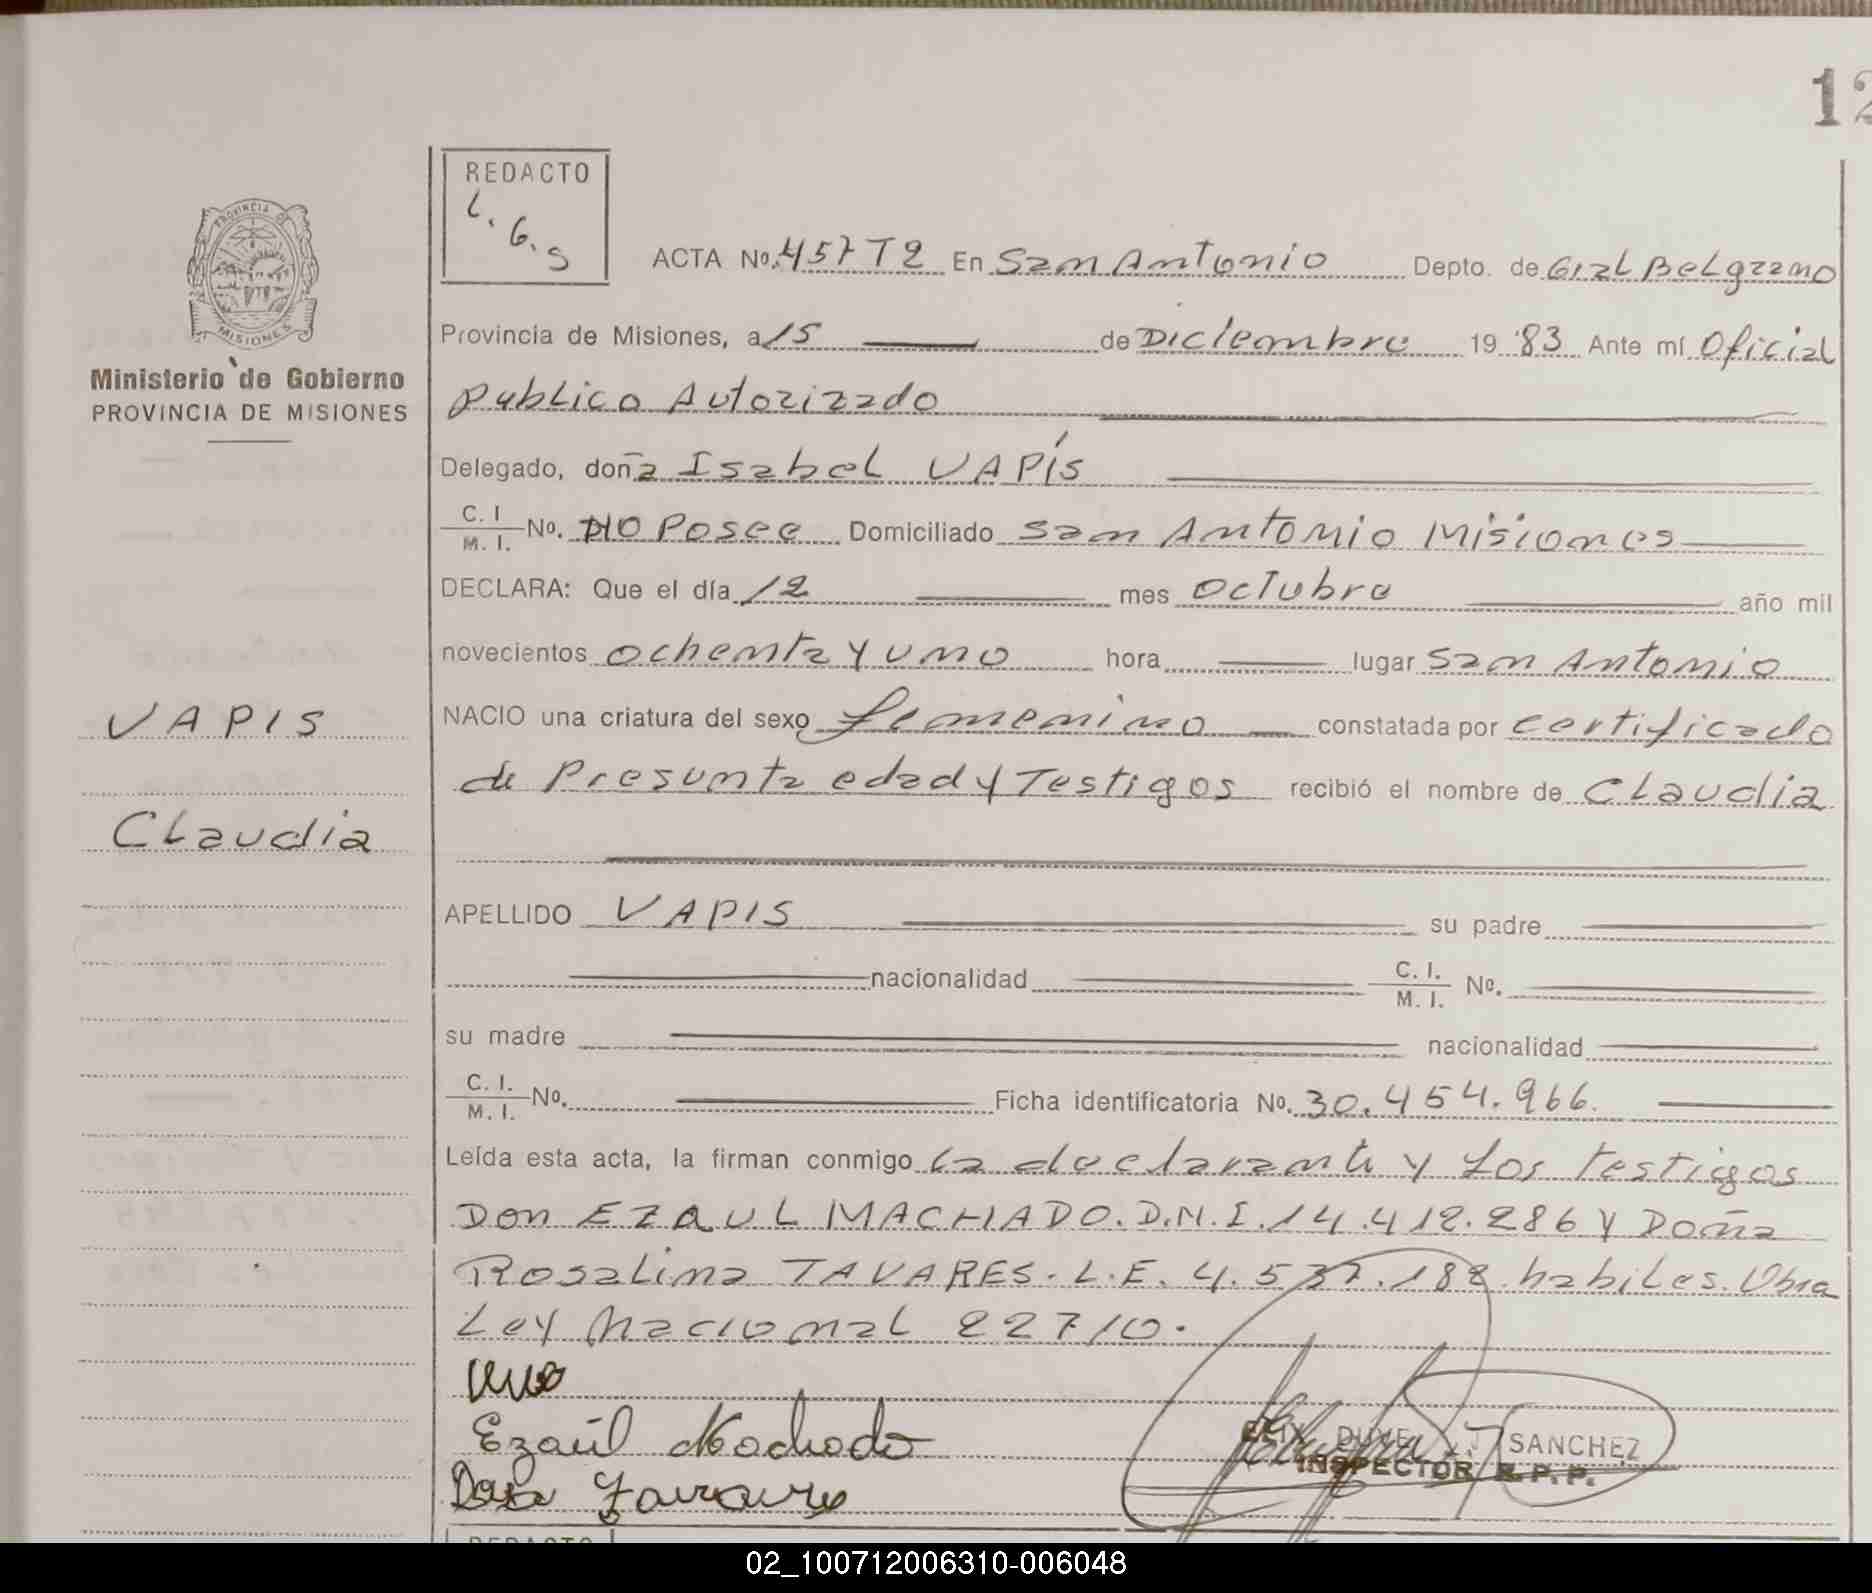 12
REDACTO
L. G. S
PROVINCIA DE
MISIONES
Ministerio de Gobierno
PROVINCIA DE MISIONES
ACTA Nº. 457 T2 En San Antonio Depto. de Gral Belgrano
Provincia de Misiones, a 15 de Diciembre 19 83 Ante mí Oficial
Publico Autorizado
Delegado, doña Isabel VAPÍS
C. I / M. I. No. NO Posee Domiciliado San Antonio Misiones
DECLARA: Que el día 12 mes Octubre año mil
novecientos ochenta y uno hora lugar San Antonio
VAPIS
NACIO una criatura del sexo femenino constatada por certificado
de Presunta edad y Testigos recibió el nombre de Claudia
Claudia
APELLIDO VAPIS su padre
nacionalidad C. I. / M. I. Nº.
su madre nacionalidad
C. I. / M. I. No. Ficha identificatoria No. 30.454.966.
Leída esta acta, la firman conmigo la declarante y los testigos
Don EZAUL MACHADO. D.N.I. 14.412.286 y Doña
Rosalina TAVARES. L.E. 4.537.188 habiles. Obra
Ley Nacional 22710.
Ezaúl Machado
SANCHEZ
INSPECTOR R. P. P.
REDACTO
02_100712006310-006048